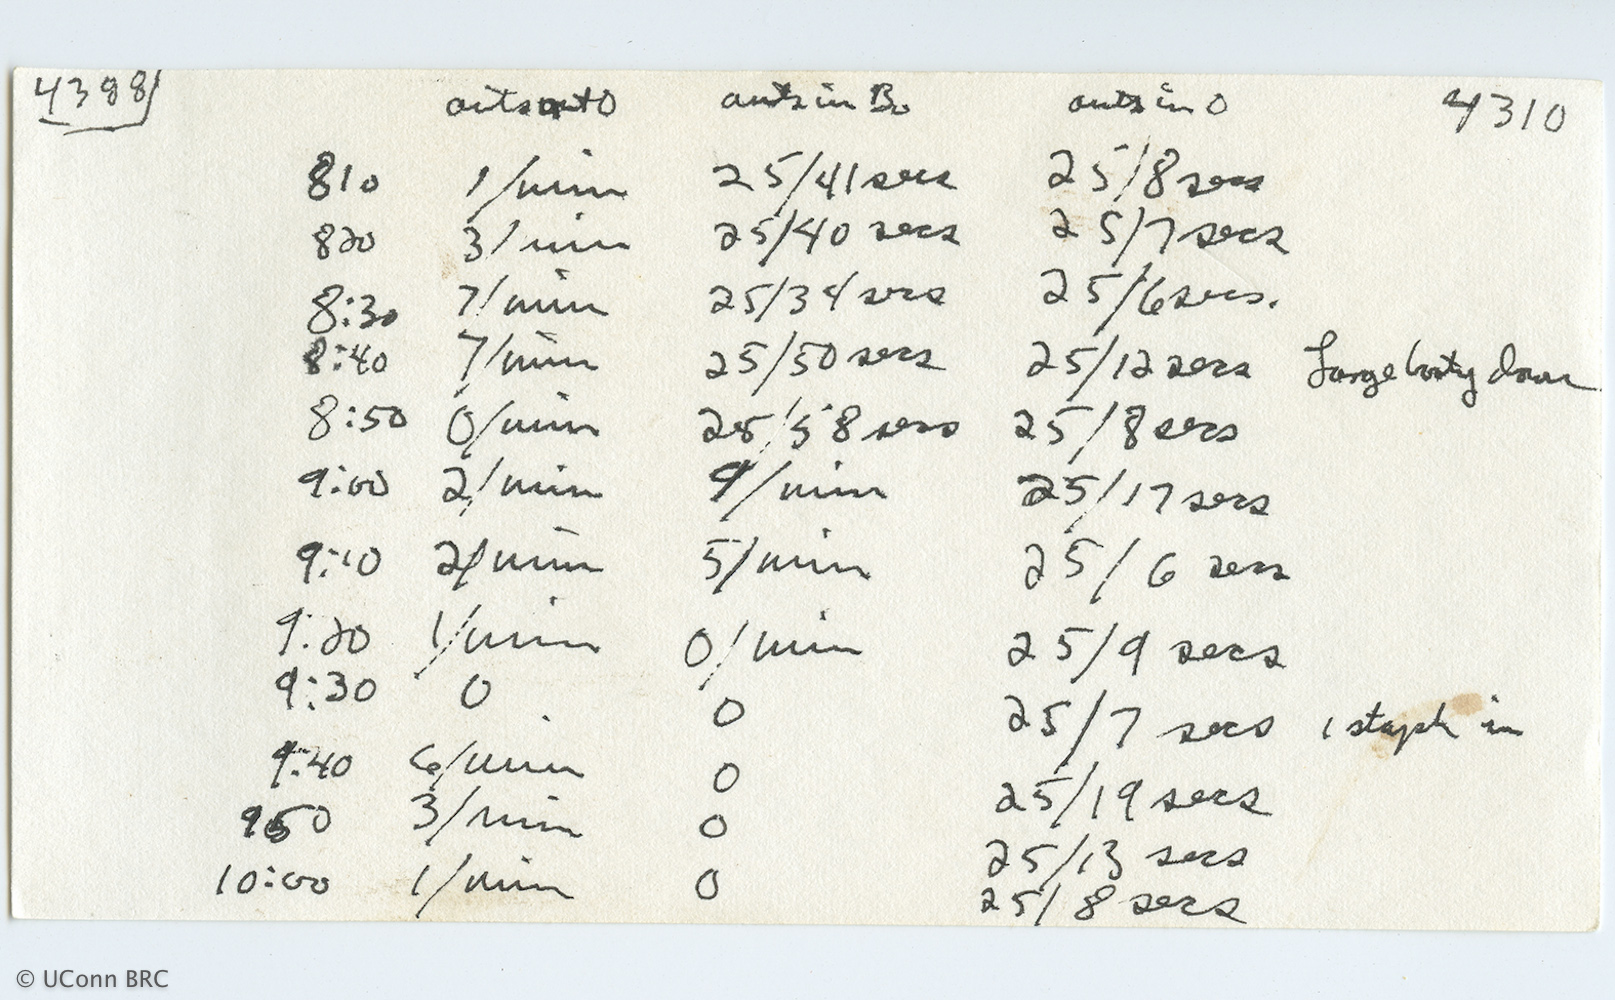 4398 ants out O ants in B. ants in O 4310
810 1/min 25/41 secs 25/8 secs
820 3/min 25/40 secs 25/7 secs
8:30 7/min 25/34 secs 25/6 secs.
8:40 7/min 25/50 secs 25/12 secs Large booty down
8:50 0/min 25/58 secs 25/8 secs
9:00 2/min 9/min 25/17 secs
9:10 2/min 5/min 25/6 secs
9:20 1/min 0/min 25/9 secs
9:30 0 0 25/7 secs 1 staph in
9:40 6/min 0 25/19 secs
950 3/min 0 25/13 secs
10:00 1/min 0 25/8 secs
© UConn BRC